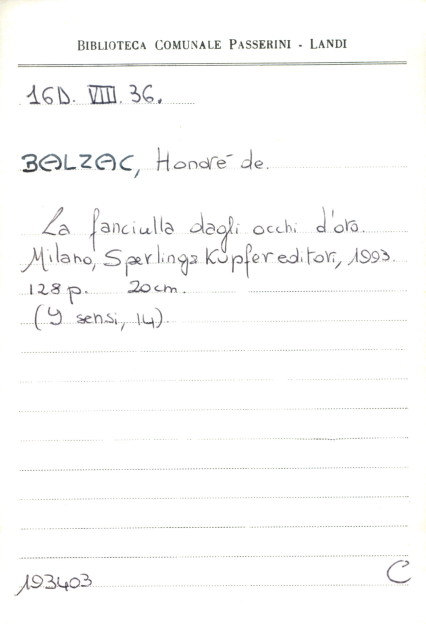 BIBLIOTECA COMUNALE PASSERINI - LANDI
16D. VIII. 36.
BALZAC, Honoré de.
La fanciulla dagli occhi d'oro.
Milano, Sperling & Kupfer editori, 1993.
128 p. 20 cm.
(I sensi, 14).
193403 C